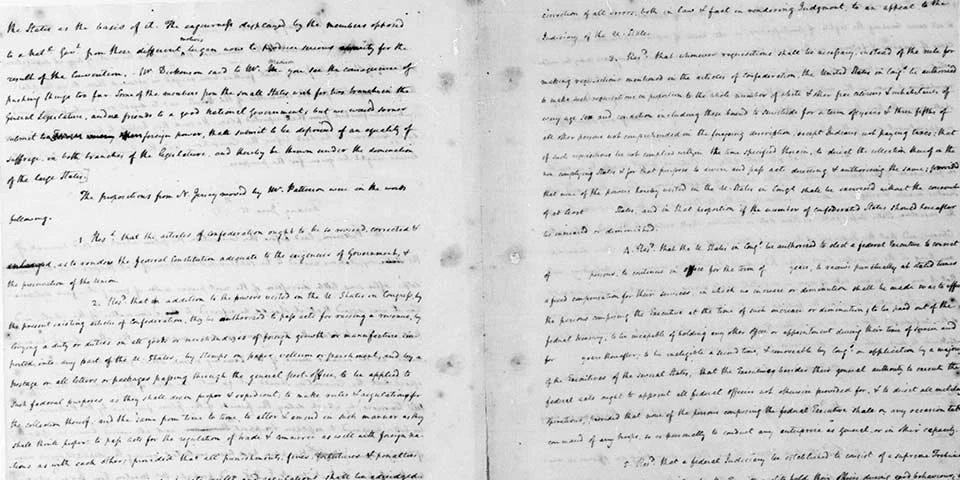 the States as the basis of it. The eagerness displayed by the members opposed
to a Natl. Govt. from these different motives began now to produce serious anxiety for the
result of the Convention. Mr. Dickenson said to Mr. you see the consequence of
pushing things too far. Some of the members from the small States wish for two branches in the
General Legislature, and are friends to a good National Government; but we would sooner
submit to foreign power, than submit to be deprived of an equality of
suffrage, in both branches of the legislature, and thereby be thrown under the domination
of the large States.
The propositions from N. Jersey moved by Mr. Patterson were in the words
following.
1. Resd. that the articles of Confederation ought to be so revised, corrected &
enlarged, as to render the federal Constitution adequate to the exigencies of Government, &
the preservation of the Union.
2. Resd. that in addition to the powers vested in the U. States in Congress, by
the present existing articles of Confederation, they be authorized to pass acts for raising a revenue, by
levying a duty or duties on all goods or merchandizes of foreign growth or manufacture, im-
ported into any part of the U. States, by Stamps on paper, vellum or parchment, and by a
postage on all letters or packages passing through the general post-office, to be applied to
such federal purposes as they shall deem proper & expedient; to make rules & regulations for
the collection thereof; and the same from time to time, to alter & amend in such manner as they
shall think proper: to pass Acts for the regulation of trade & commerce as well with foreign na-
tions as with each other; provided that all punishments, fines, forfeitures & penalties
rules and regulations shall be adjudged
correction of all errors, both in law & fact in rendering Judgment, to an appeal to the
Judiciary of the U. States.
3. Resd. that whenever requisitions shall be necessary, instead of the rule for
making requisitions mentioned in the articles of Confederation, the United States in Congs. be authorized
to make such requisitions in proportion to the whole number of white & other free citizens & inhabitants of
every age sex and condition including those bound to servitude for a term of years & three fifths of
all other persons not comprehended in the foregoing description, except Indians not paying taxes; that
if such requisitions be not complied with, in the time specified therein, to direct the collection thereof in the
non complying States & for that purpose to devise and pass acts directing & authorizing the same; provided
that none of the powers hereby vested in the U. States in Congs. shall be exercised without the consent
of at least States, and in that proportion if the number of confederated States should hereafter
be increased or diminished.
4. Resd. that the U. States in Congs. be authorized to elect a federal Executive to consist
of persons, to continue in office for the term of years, to receive punctually at stated times
a fixed compensation for their services, in which no increase or diminution shall be made so as to affect
the persons composing the Executive at the time of such increase or diminution, to be paid out of the
federal treasury; to be incapable of holding any other office or appointment during their time of service and
for years thereafter; to be ineligible a second time, & removeable by Congs. on application by a majority
of the Executives of the several States; that the Executives besides their general authority to execute the
federal acts ought to appoint all federal officers not otherwise provided for, & to direct all military
operations; provided that none of the persons composing the federal Executive shall on any occasion take
command of any troops, so as personally to conduct any enterprise as General, or in other capacity.
5. Resd. that a federal Judiciary be established to consist of a supreme Tribunal
to hold their offices during good behaviour,